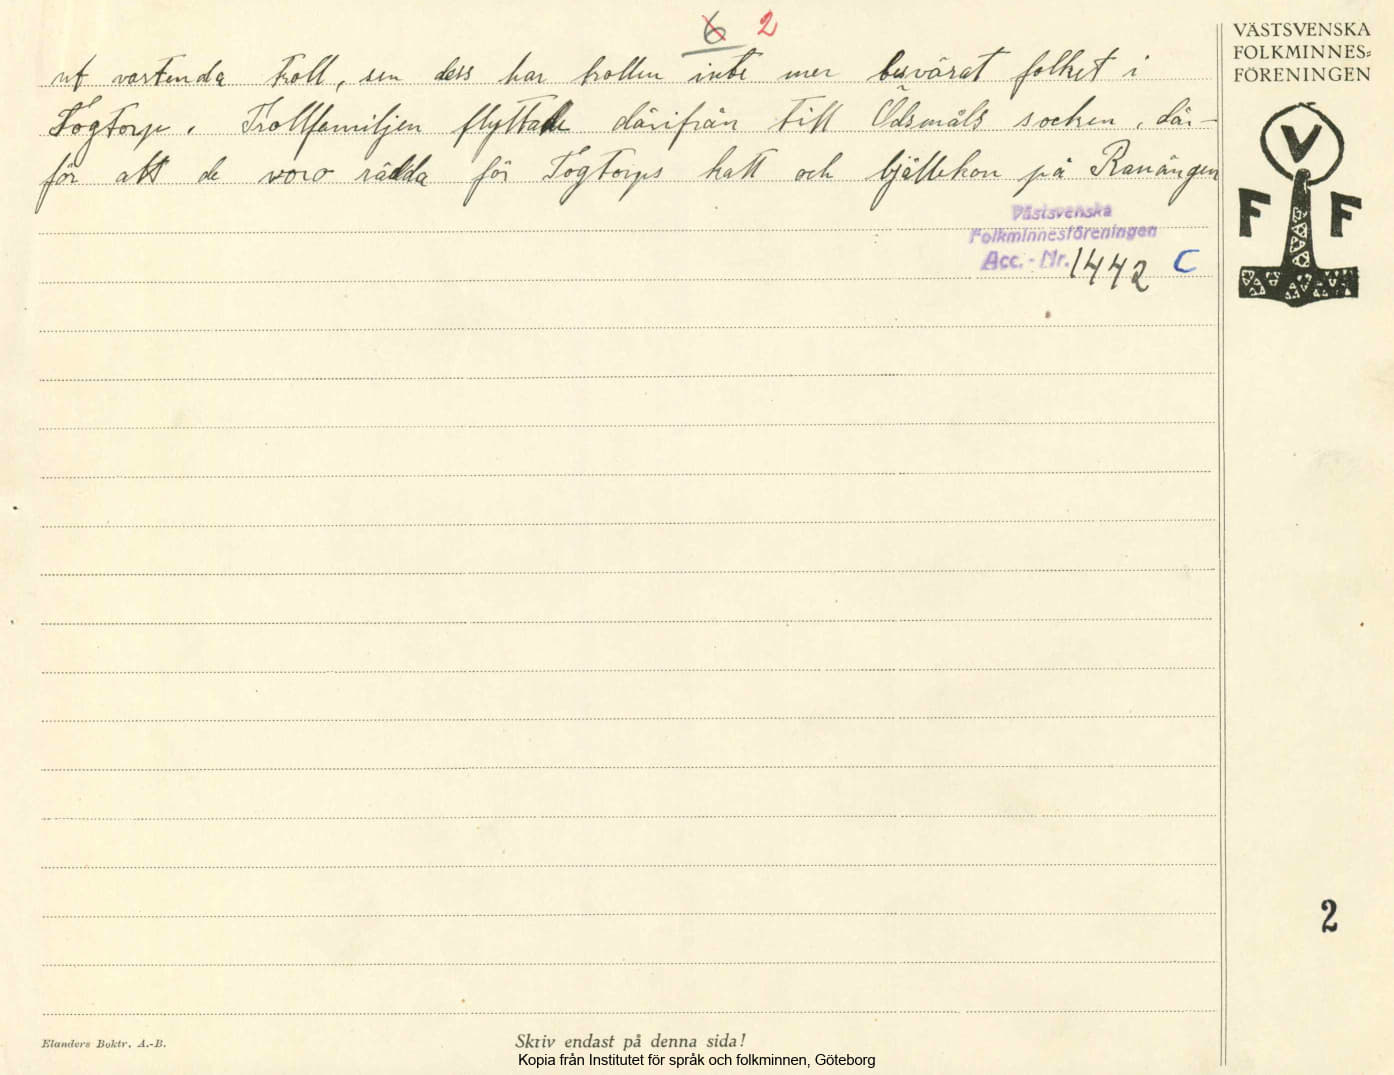 6 2
ut vartenda troll, sen dess har trollen inte mer besvärat folket i
Togtorp. Trollfamiljen flyttade därifrån till Ödsmåls socken, där-
för att de voro rädda för Togtorps katt och bjällekon på Ranängen
Västsvenska
Folkminnesföreningen
Acc. - Nr. 1442 C
VÄSTSVENSKA
FOLKMINNES=
FÖRENINGEN
V
F F
2
Elanders Boktr. A.-B.
Skriv endast på denna sida!
Kopia från Institutet för språk och folkminnen, Göteborg